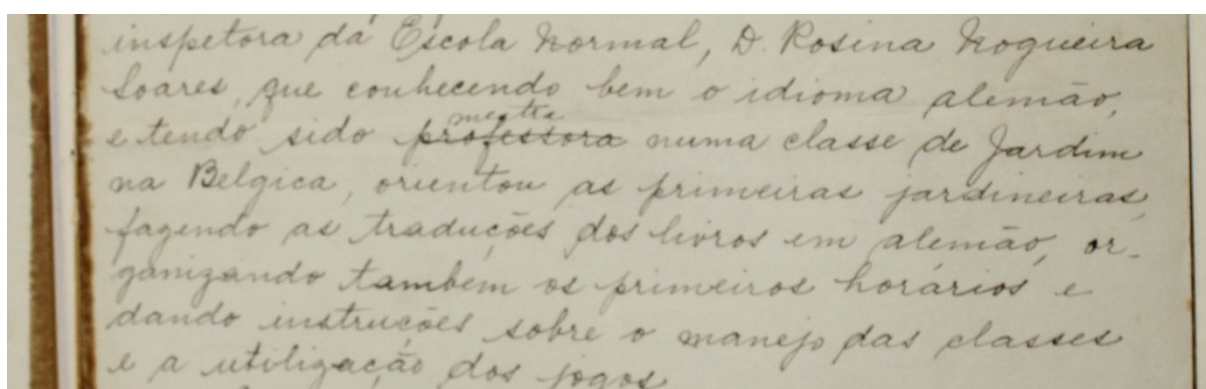 inspetora da Escola Normal, D. Rosina Nogueira
Soares, que conhecendo bem o idioma alemão,
mestra
e tendo sido professora numa classe de Jardim
na Belgica, orientou as primeiras jardineiras,
fazendo as traduções dos livros em alemão, or-
ganizando tambem os primeiros horários e
dando instruções sobre o manejo das classes
e a utilização dos jogos